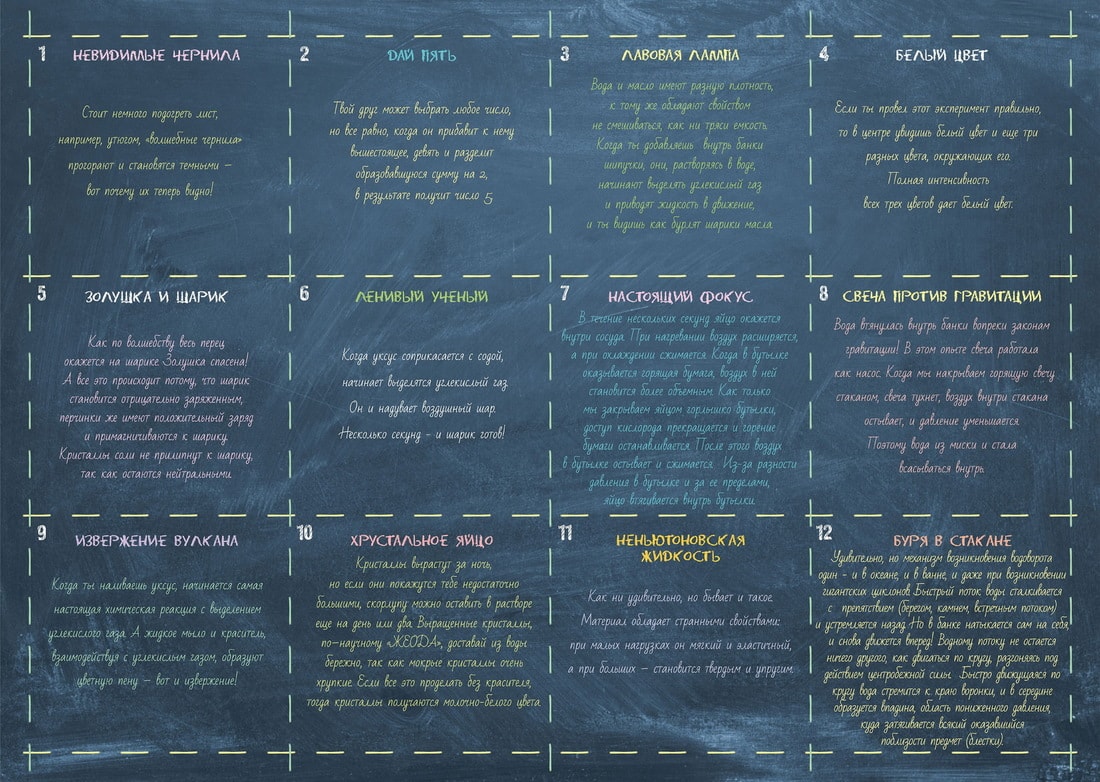 1
НЕВИДИМЫЕ ЧЕРНИЛА
Стоит немного подогреть лист,
например, утюгом, «волшебные чернила»
прогорают и становятся темными –
вот почему их теперь видно!
2
ДАЙ ПЯТЬ
Твой друг может выбрать любое число,
но все равно, когда он прибавит к нему
вышестоящее, девять и разделит
образовавшуюся сумму на 2,
в результате получит число 5
3
ЛАВОВАЯ ЛАМПА
Вода и масло имеют разную плотность,
к тому же обладают свойством
не смешиваться, как ни тряси емкость.
Когда ты добавляешь внутрь банки
шипучки, они, растворяясь в воде,
начинают выделять углекислый газ
и приводят жидкость в движение,
и ты видишь как бурлят шарики масла.
4
БЕЛЫЙ ЦВЕТ
Если ты провел этот эксперимент правильно,
то в центре увидишь белый цвет и еще три
разных цвета, окружающих его.
Полная интенсивность
всех трех цветов дает белый цвет.
5
ЗОЛУШКА И ШАРИК
Как по волшебству весь перец
окажется на шарике. Золушка спасена!
А все это происходит потому, что шарик
становится отрицательно заряженным,
перчинки же имеют положительный заряд
и примагничиваются к шарику.
Кристаллы соли не прилипнут к шарику,
так как остаются нейтральными.
6
ЛЕНИВЫЙ УЧЕНЫЙ
Когда уксус соприкасается с содой,
начинает выделятся углекислый газ.
Он и надувает воздушный шар.
Несколько секунд – и шарик готов!
7
НАСТОЯЩИЙ ФОКУС
В течение нескольких секунд яйцо окажется
внутри сосуда. При нагревании воздух расширяется,
а при охлаждении сжимается. Когда в бутылке
оказывается горящая бумага, воздух в ней
становится более объемным. Как только
мы закрываем яйцом горлышко бутылки,
доступ кислорода прекращается и горение
бумаги останавливается. После этого воздух
в бутылке остывает и сжимается. Из-за разности
давления в бутылке и за ее пределами,
яйцо втягивается внутрь бутылки.
8
СВЕЧА ПРОТИВ ГРАВИТАЦИИ
Вода втянулась внутрь банки вопреки законам
гравитации! В этом опыте свеча работала
как насос. Когда мы накрываем горящую свечу
стаканом, свеча тухнет, воздух внутри стакана
остывает, и давление уменьшается.
Поэтому вода из миски и стала
всасываться внутрь.
9
ИЗВЕРЖЕНИЕ ВУЛКАНА
Когда ты наливаешь уксус, начинается самая
настоящая химическая реакция с выделением
углекислого газа. А жидкое мыло и краситель,
взаимодействуя с углекислым газом, образуют
цветную пену – вот и извержение!
10
ХРУСТАЛЬНОЕ ЯЙЦО
Кристаллы вырастут за ночь,
но если они покажутся тебе недостаточно
большими, скорлупу можно оставить в растворе
еще на день или два. Выращенные кристаллы,
по-научному «ЖЕОДА», доставай из воды
бережно, так как мокрые кристаллы очень
хрупкие. Если все это проделать без красителя,
тогда кристаллы получаются молочно-белого цвета.
11
НЕНЬЮТОНОВСКАЯ
ЖИДКОСТЬ
Как ни удивительно, но бывает и такое.
Материал обладает странными свойствами:
при малых нагрузках он мягкий и эластичный,
а при больших – становится твердым и упругим.
12
БУРЯ В СТАКАНЕ
Удивительно, но механизм возникновения водоворота
один – и в океане, и в ванне, и даже при возникновении
гигантских циклонов. Быстрый поток воды сталкивается
с препятствием (берегом, камнем, встречным потоком)
и устремляется назад. Но в банке натыкается сам на себя,
и снова движется вперед! Водному потоку не остается
ничего другого, как двигаться по кругу, разгоняясь под
действием центробежной силы. Быстро движущаяся по
кругу вода стремится к краю воронки, и в середине
образуется впадина, область пониженного давления,
куда затягивается всякий оказавшийся
поблизости предмет (блестки).